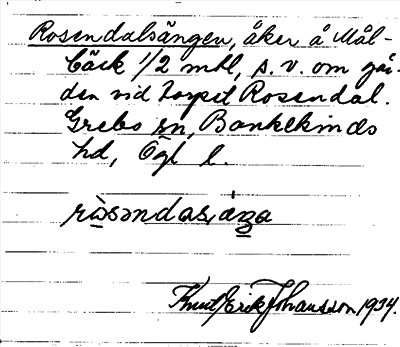 Rosendalsängen, åker å Mål-
bäck 1/2 mtl, s. v. om går-
den vid torpet Rosendal.
Grebo sn, Bankekinds
hd, Ögl l.
Knut Erik Johansson 1934.